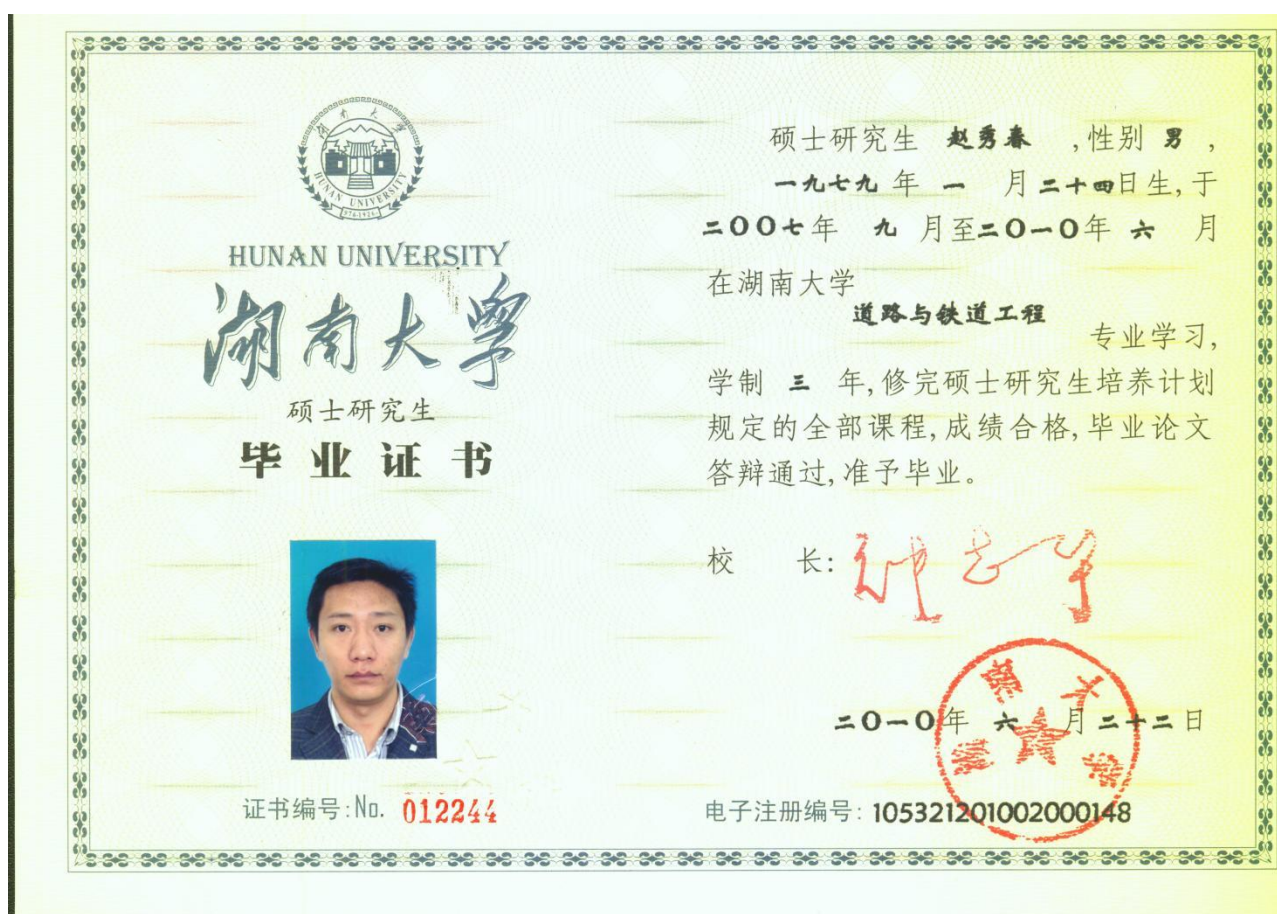 湖南大学
HUNAN UNIVERSITY
HUNAN UNIVERSITY
湖南大学
硕士研究生
毕业证书
证书编号:No. 012244
硕士研究生 赵秀春 ,性别 男 ,
一九七九 年 一 月 二十四日生,于
二〇〇七年 九 月至二〇一〇年 六 月
在湖南大学
道路与铁道工程
专业学习,
学制 三 年,修完硕士研究生培养计划
规定的全部课程,成绩合格,毕业论文
答辩通过,准予毕业。
校 长:
二〇一〇年 六 月二十二日
湖南大学
电子注册编号: 105321201002000148